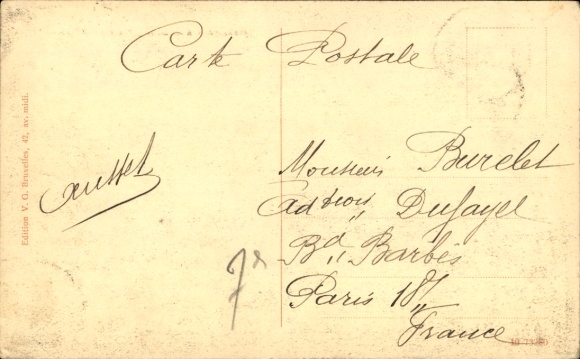 Carte Postale
Edition V. G. Bruxelles, 42, av. midi.
Monsieur Burelet
Adtion Dufayel
Bd Barbès
Paris 18e
France
7x